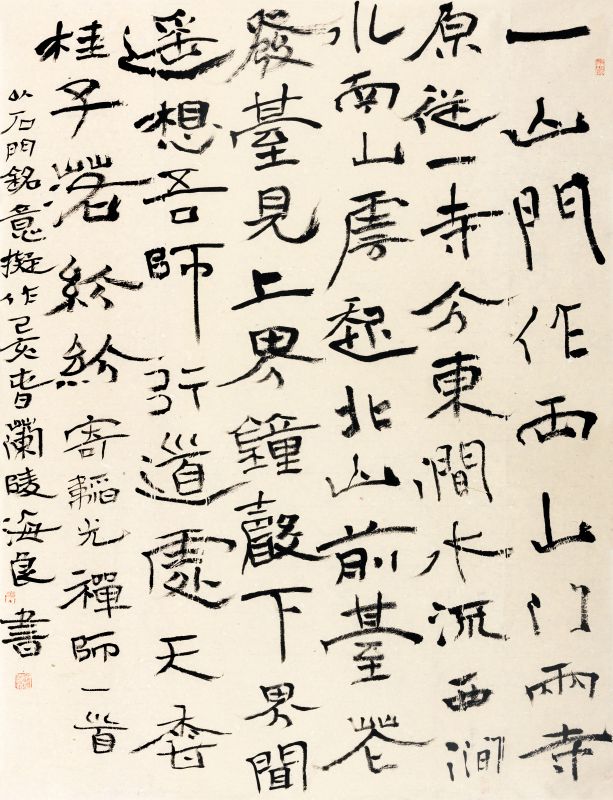 一山門作兩山門兩寺
原從一寺分東澗水流西澗
水南山雲起北山前臺花
發臺見上界鐘聲下界聞
遙想吾師行道處天香
桂子落紛紛寄韜光禪師一首
以石門銘意擬作己亥春蘭陵海良書